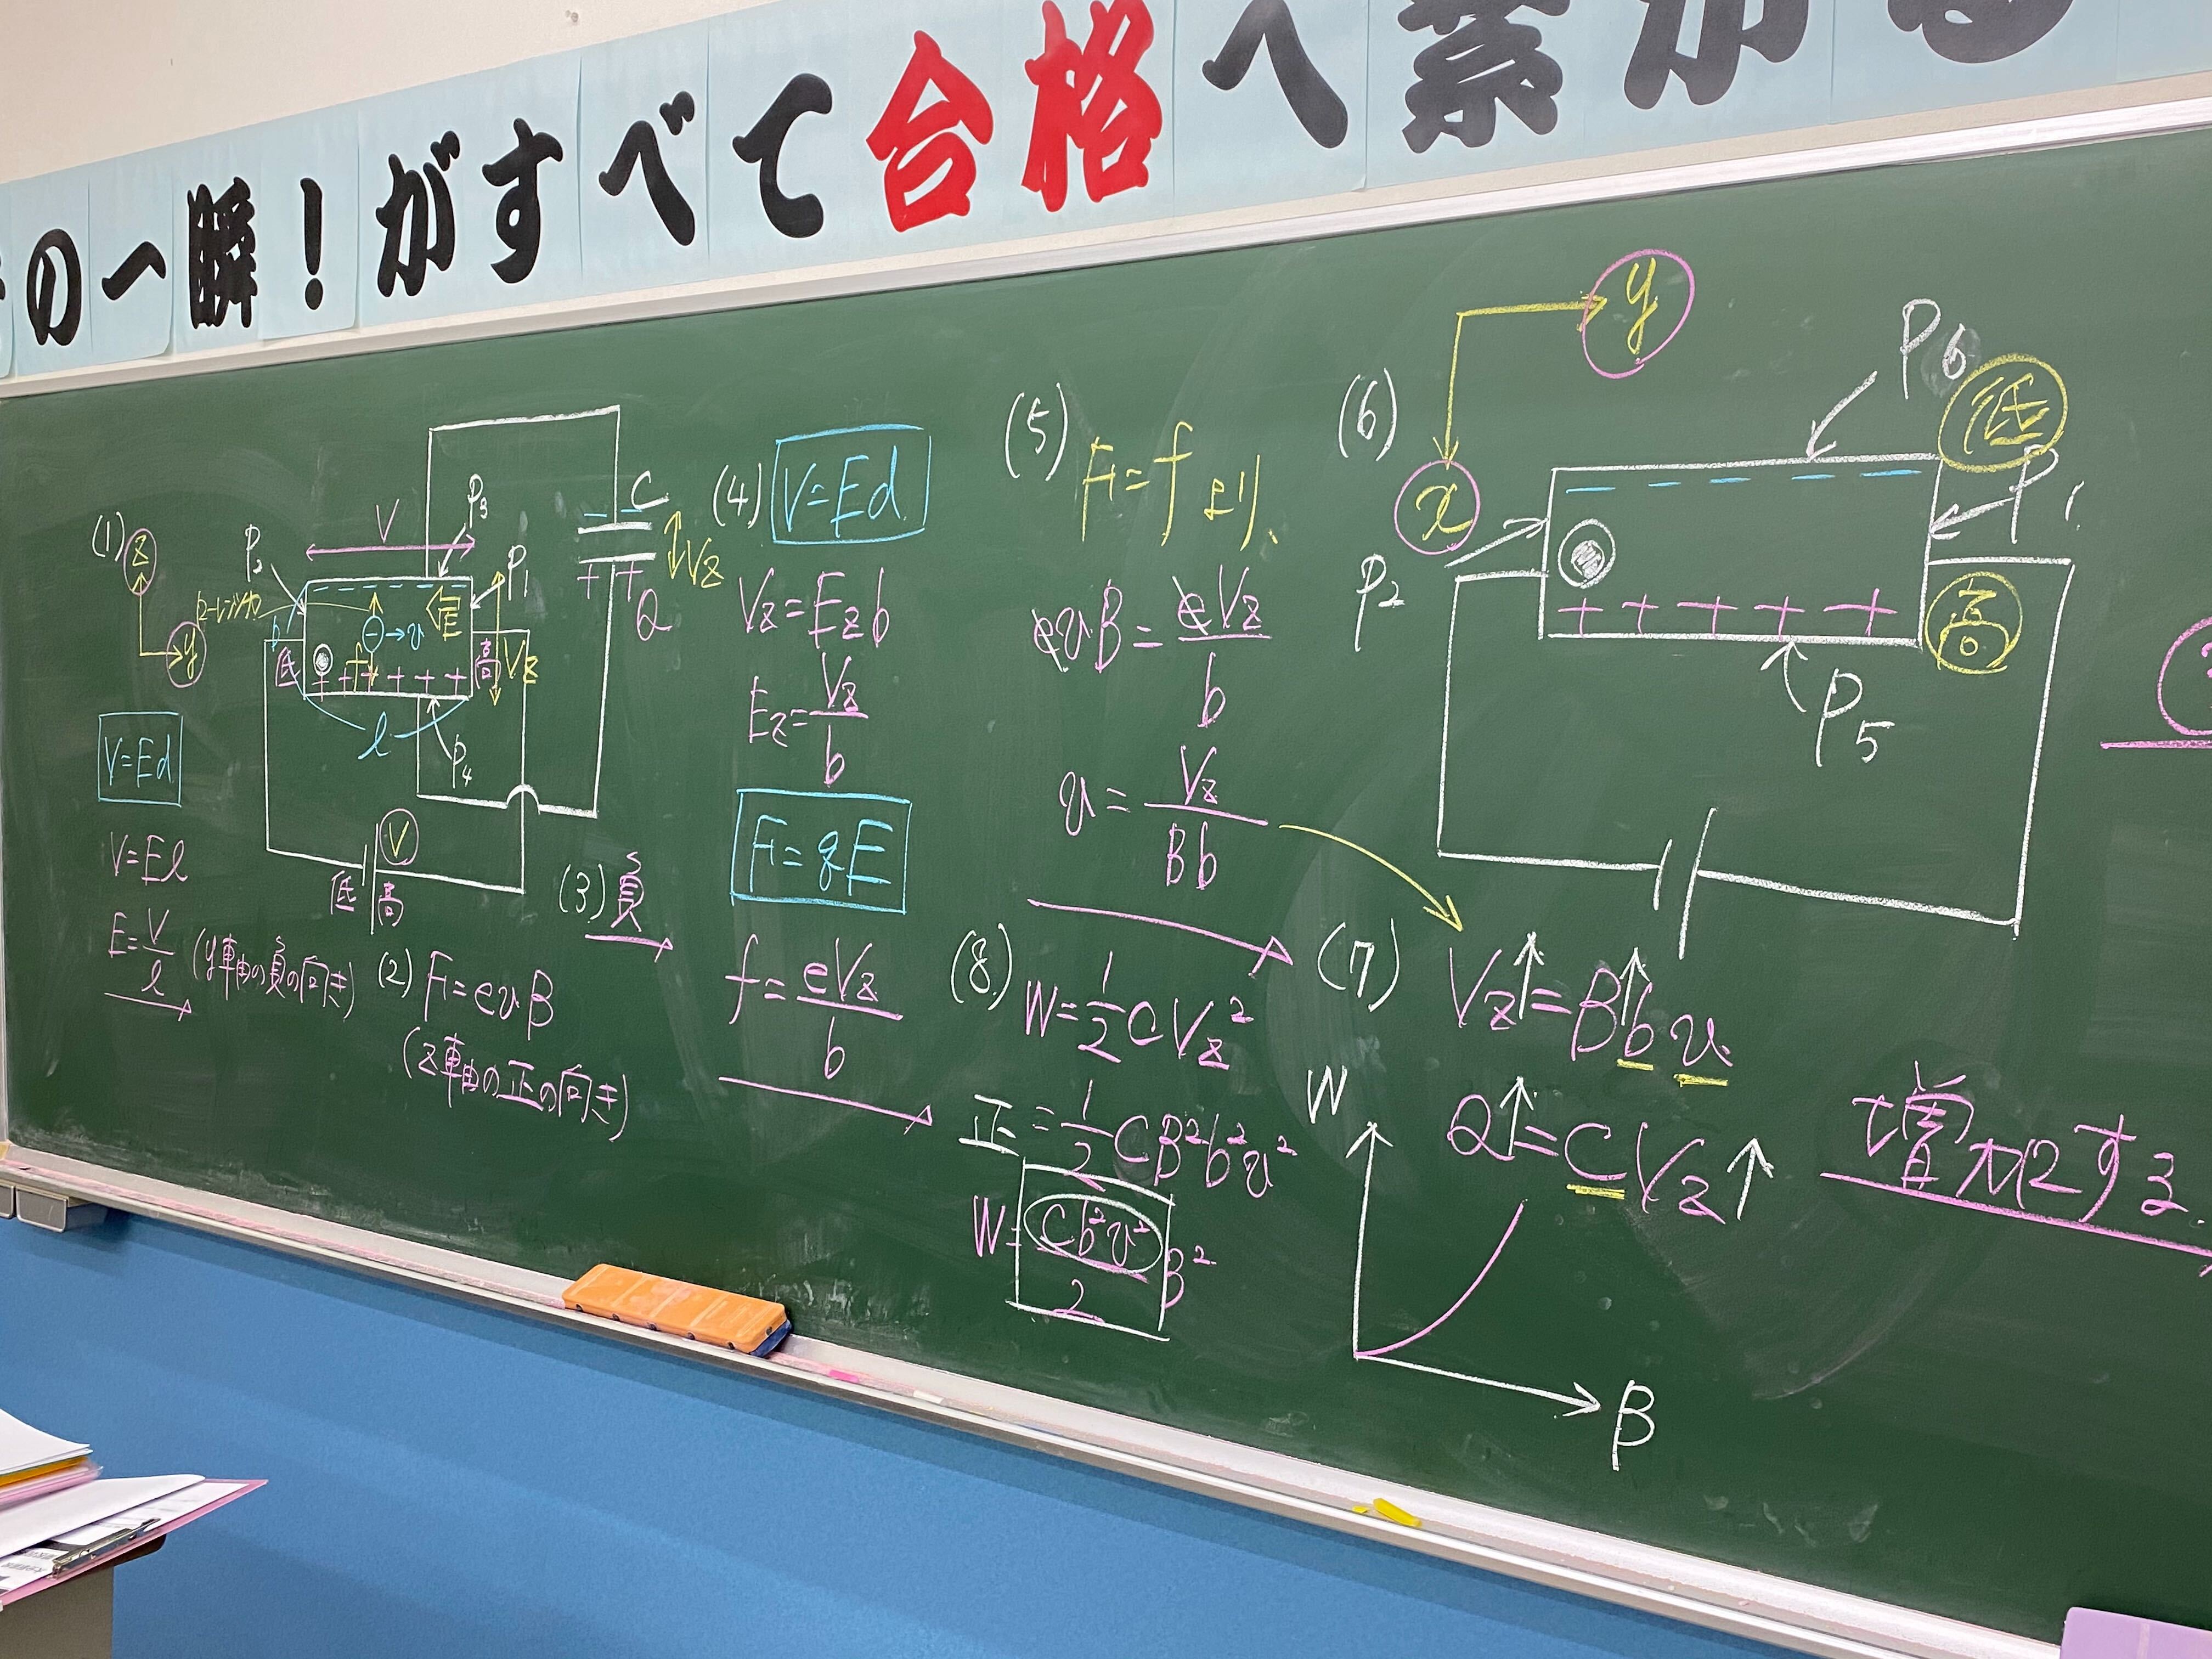 の一瞬！がすべて合格へ繋がる
(1)
z
y
V
P3
P1
P2
C
Vz
Q
ローレンツ力
E
v
f
b
低
高
Vz
l
P4
V
低 高
V=Ed
V=El
E=V/l (y軸の負の向き)
(2) F=evB
(z軸の正の向き)
(3) 負
(4) V=Ed
Vz=Ezb
Ez=Vz/b
F=qE
f=eVz/b
(5) F=fより、
evB=eVz/b
v=Vz/Bb
(6)
y
x
P6
低
P1
P2
高
P5
(7) Vz↑=B↑bv
Q↑=CVz↑ 増加する
(8) W=1/2CVz²
正 =1/2CB²b²v²
W=Cb²v²/2 B²
W
B